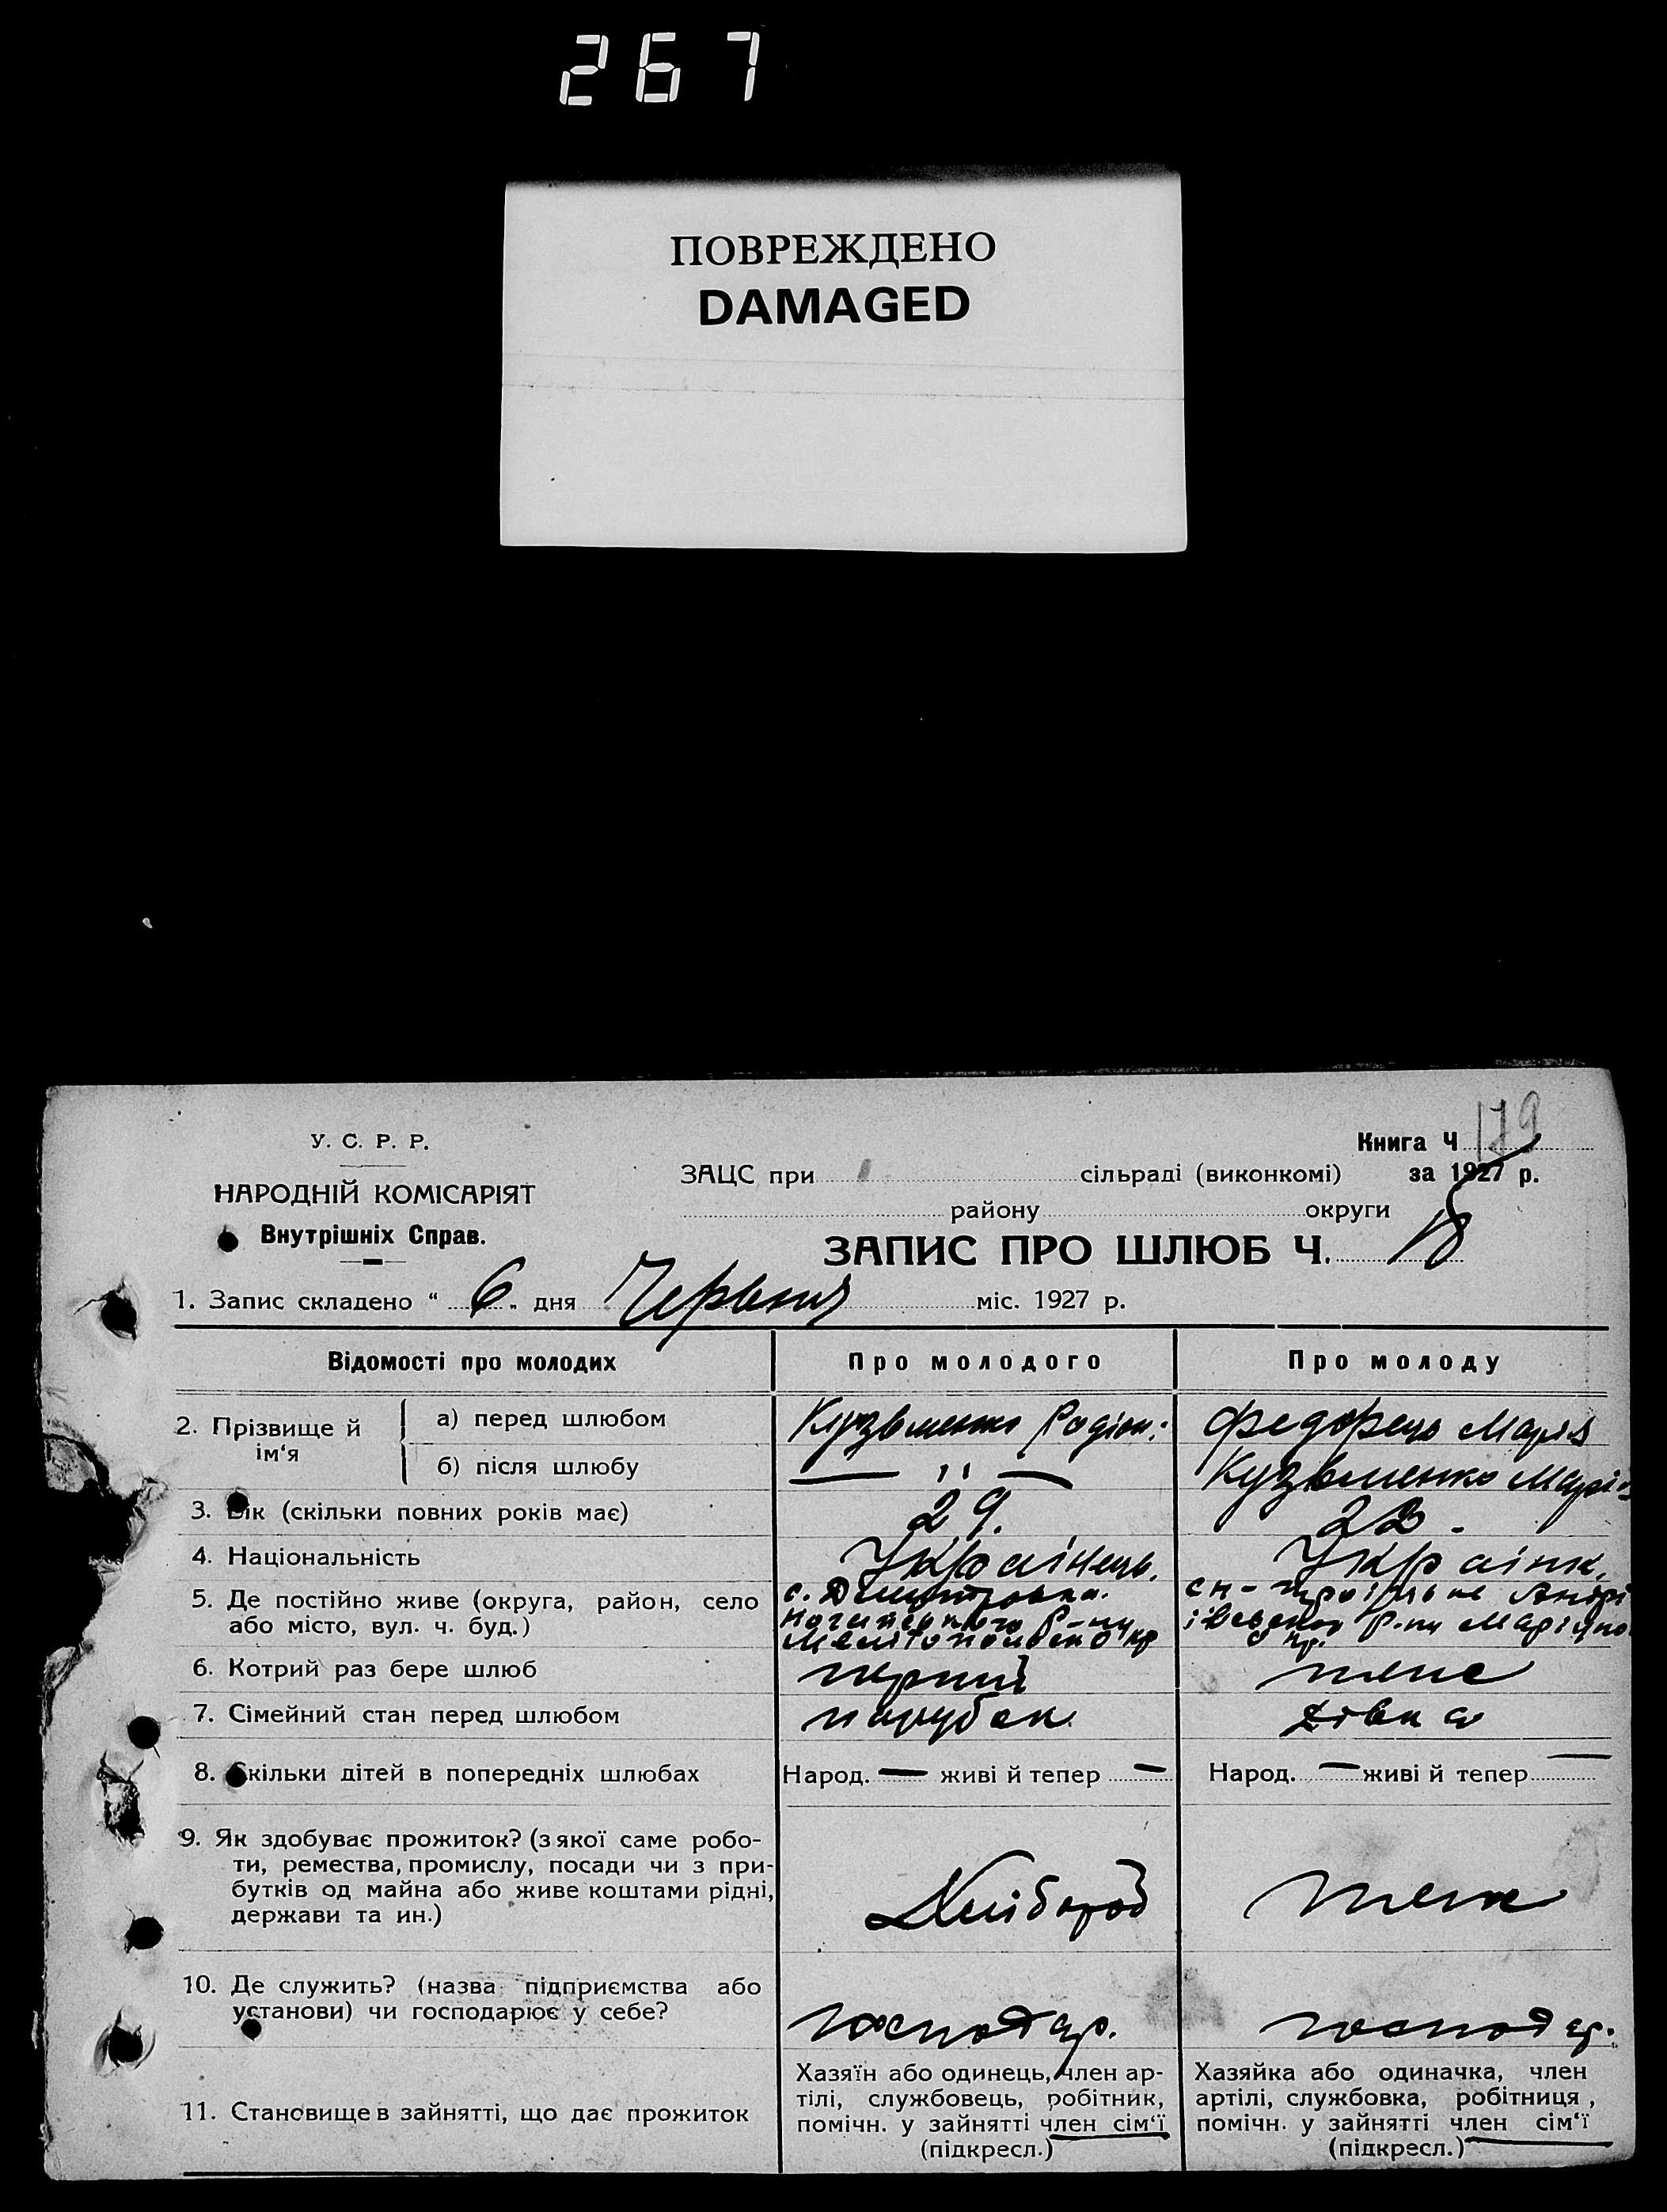 267
ПОВРЕЖДЕНО
DAMAGED
У. С. Р. Р.
НАРОДНІЙ КОМІСАРІЯТ
Внутрішніх Справ.
Книга Ч 179
ЗАЦС при сільраді (виконкомі) за 1927 р.
району округи
ЗАПИС ПРО ШЛЮБ Ч. 18
1. Запис складено " 6 " дня Червня міс. 1927 р.
Відомості про молодих Про молодого Про молоду
2. Прізвище й ім'я
а) перед шлюбом Кузьменко Родіон: Федорець Марія
б) після шлюбу — " — Кузьменко Марія
3. Вік (скільки повних років має) 29. 22.
4. Національність Українець. Українк.
5. Де постійно живе (округа, район, село
або місто, вул. ч. буд.)
с. Дмитровка.
6. Котрий раз бере шлюб перший теж
7. Сімейний стан перед шлюбом парубок дівка
8. Скільки дітей в попередніх шлюбах Народ. — живі й тепер — Народ. — живі й тепер —
9. Як здобуває прожиток? (з якої саме робо-
ти, ремества, промислу, посади чи з при-
бутків од майна або живе коштами рідні,
держави та ин.)
Хлібороб теж
10. Де служить? (назва підприємства або
установи) чи господарює у себе?
господар. господар.
11. Становище в зайнятті, що дає прожиток
Хазяїн або одинець, член ар-
тілі, службовець, робітник,
помічн. у зайнятті член сім'ї
(підкресл.)
Хазяйка або одиначка, член
артілі, службовка, робітниця,
помічн. у зайнятті член сім'ї
(підкресл.)